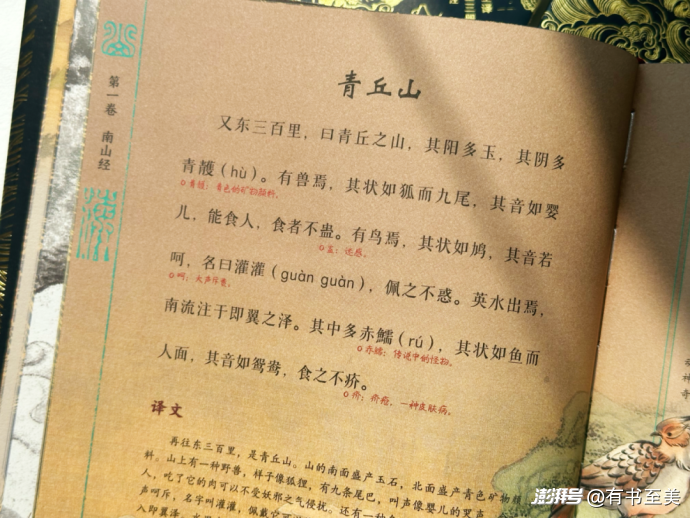 第一卷 南山经
青丘山
又东三百里，曰青丘之山，其阳多玉，其阴多
青䨼（hù）。有兽焉，其状如狐而九尾，其音如婴
青䨼：青色的矿物颜料。
儿，能食人，食者不蛊。有鸟焉，其状如鸠，其音若
蛊：迷惑。
呵，名曰灌灌（guàn guàn），佩之不惑。英水出焉，
呵：大声斥责。
南流注于即翼之泽。其中多赤鱬（rú），其状如鱼而
赤鱬：传说中的怪物。
人面，其音如鸳鸯，食之不疥。
疥：疥疮，一种皮肤病。
译文
再往东三百里，是青丘山。山的南面盛产玉石，北面盛产青色矿物颜
料。山上有一种野兽，样子像狐狸，有九条尾巴，叫声像婴儿的哭声
人，吃了它的肉可以不受妖邪之气侵扰。还有一种
声呵斥，名字叫灌灌，佩戴它
入即翼泽
神
奇
澎湃号@有书至美